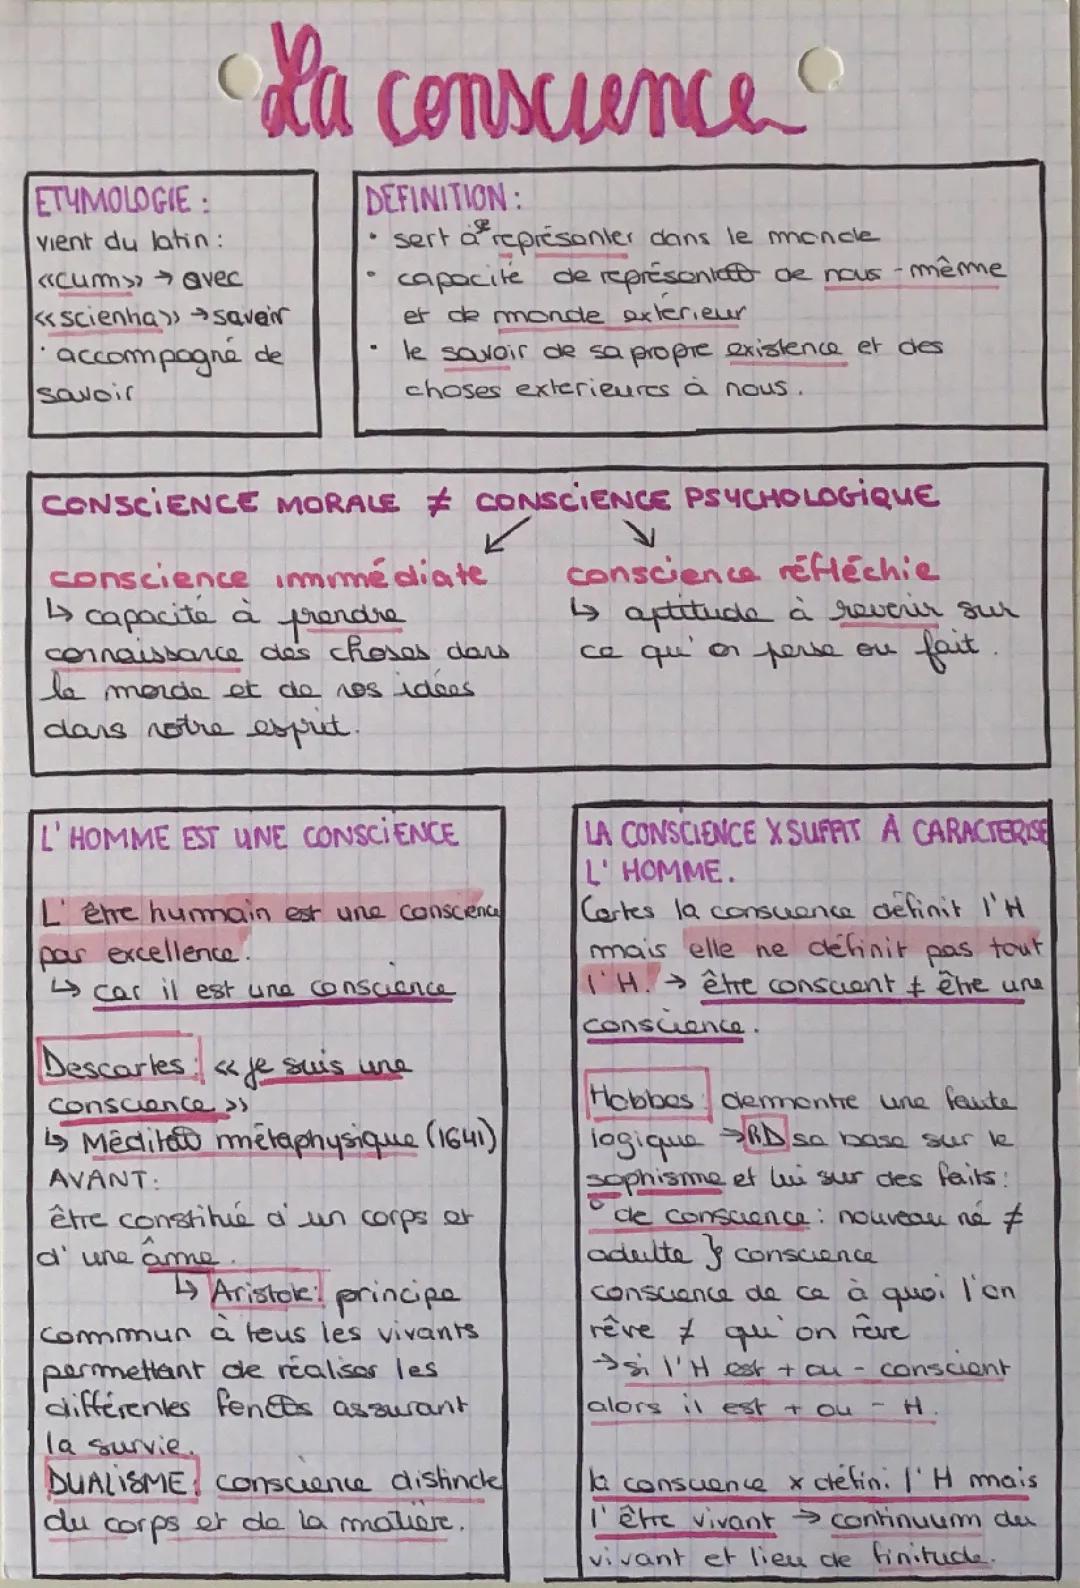 La conscience
ETYMOLOGIE :
vient du latin :
«cum» → avec
«scientia» → savoir
· accompagné de
savoir
DEFINITION :
· sert à se représenter dans le monde
· capacité de représentat° de nous-même
et de monde extérieur
· le savoir de sa propre existence et des
choses exterieures à nous.
CONSCIENCE MORALE ≠ CONSCIENCE PSYCHOLOGIQUE
conscience immédiate
↳ capacité à prendre
connaissance des choses dans
le monde et de nos idées
dans notre esprit.
conscience réfléchie
↳ aptitude à revenir sur
ce qu'on pense ou fait.
L'HOMME EST UNE CONSCIENCE
L'être humain est une conscience
par excellence.
↳ car il est une conscience
Descartes : « je suis une
conscience »
↳ Méditat° métaphysique (1641)
AVANT :
être constitué d'un corps et
d'une âme.
↳ Aristote : principe
commun à tous les vivants
permettant de réaliser les
différentes fonct°s assurant
la survie.
DUALISME : conscience distincte
du corps et de la matière.
LA CONSCIENCE X SUFFIT À CARACTERISE
L'HOMME.
Certes la conscience définit l'H
mais elle ne définit pas tout
l'H. → être conscient ≠ être une
conscience.
Hobbes : demontre une faute
logique → RD se base sur le
sophisme et lui sur des faits :
° de conscience : nouveau né ≠
adulte } conscience
conscience de ce à quoi l'on
rêve ≠ qu'on rêve
→ si l'H est + ou - conscient
alors il est + ou - H.
la conscience x défini l'H mais
l'être vivant → continuum du
vivant et lieu de finitude.